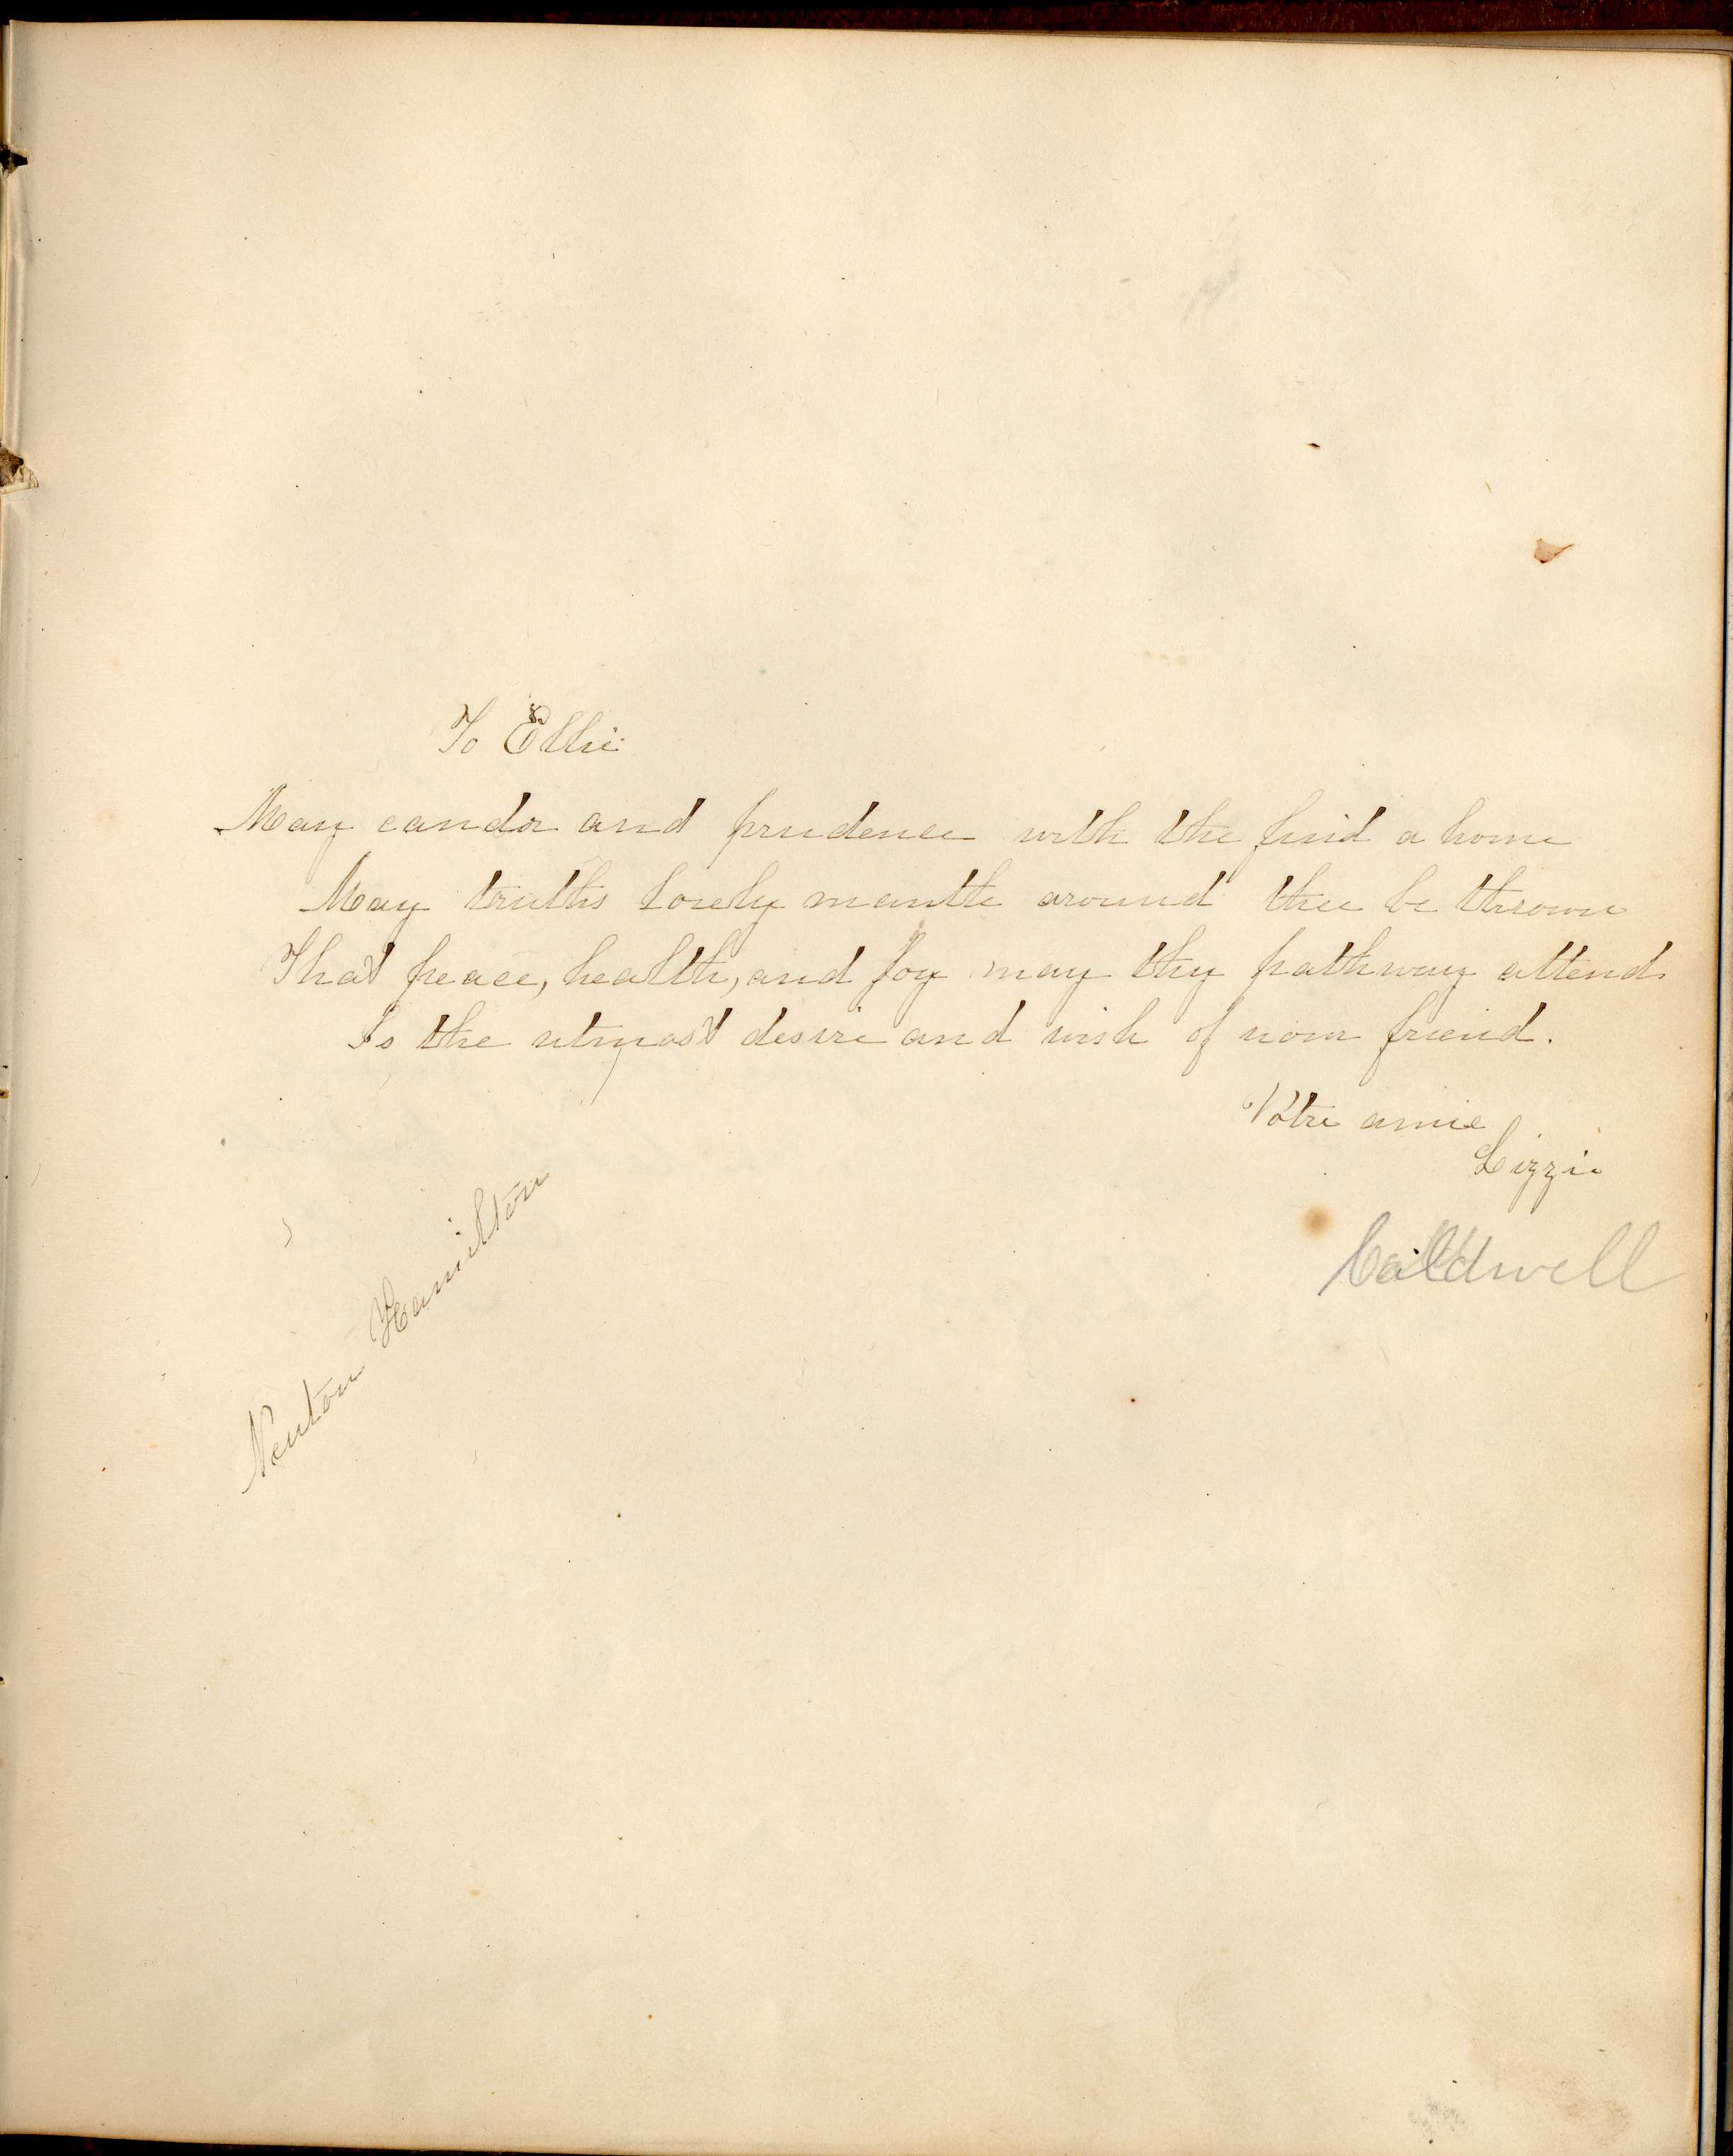 To Ellie
May candor and prudence with the find a home
May truths lovely mantle around thee be thrown
That peace, health, and joy may thy pathway attend
Is the utmost desire and wish of your friend.
Votre amie
Lizzie
Caldwell
Newton Hamilton